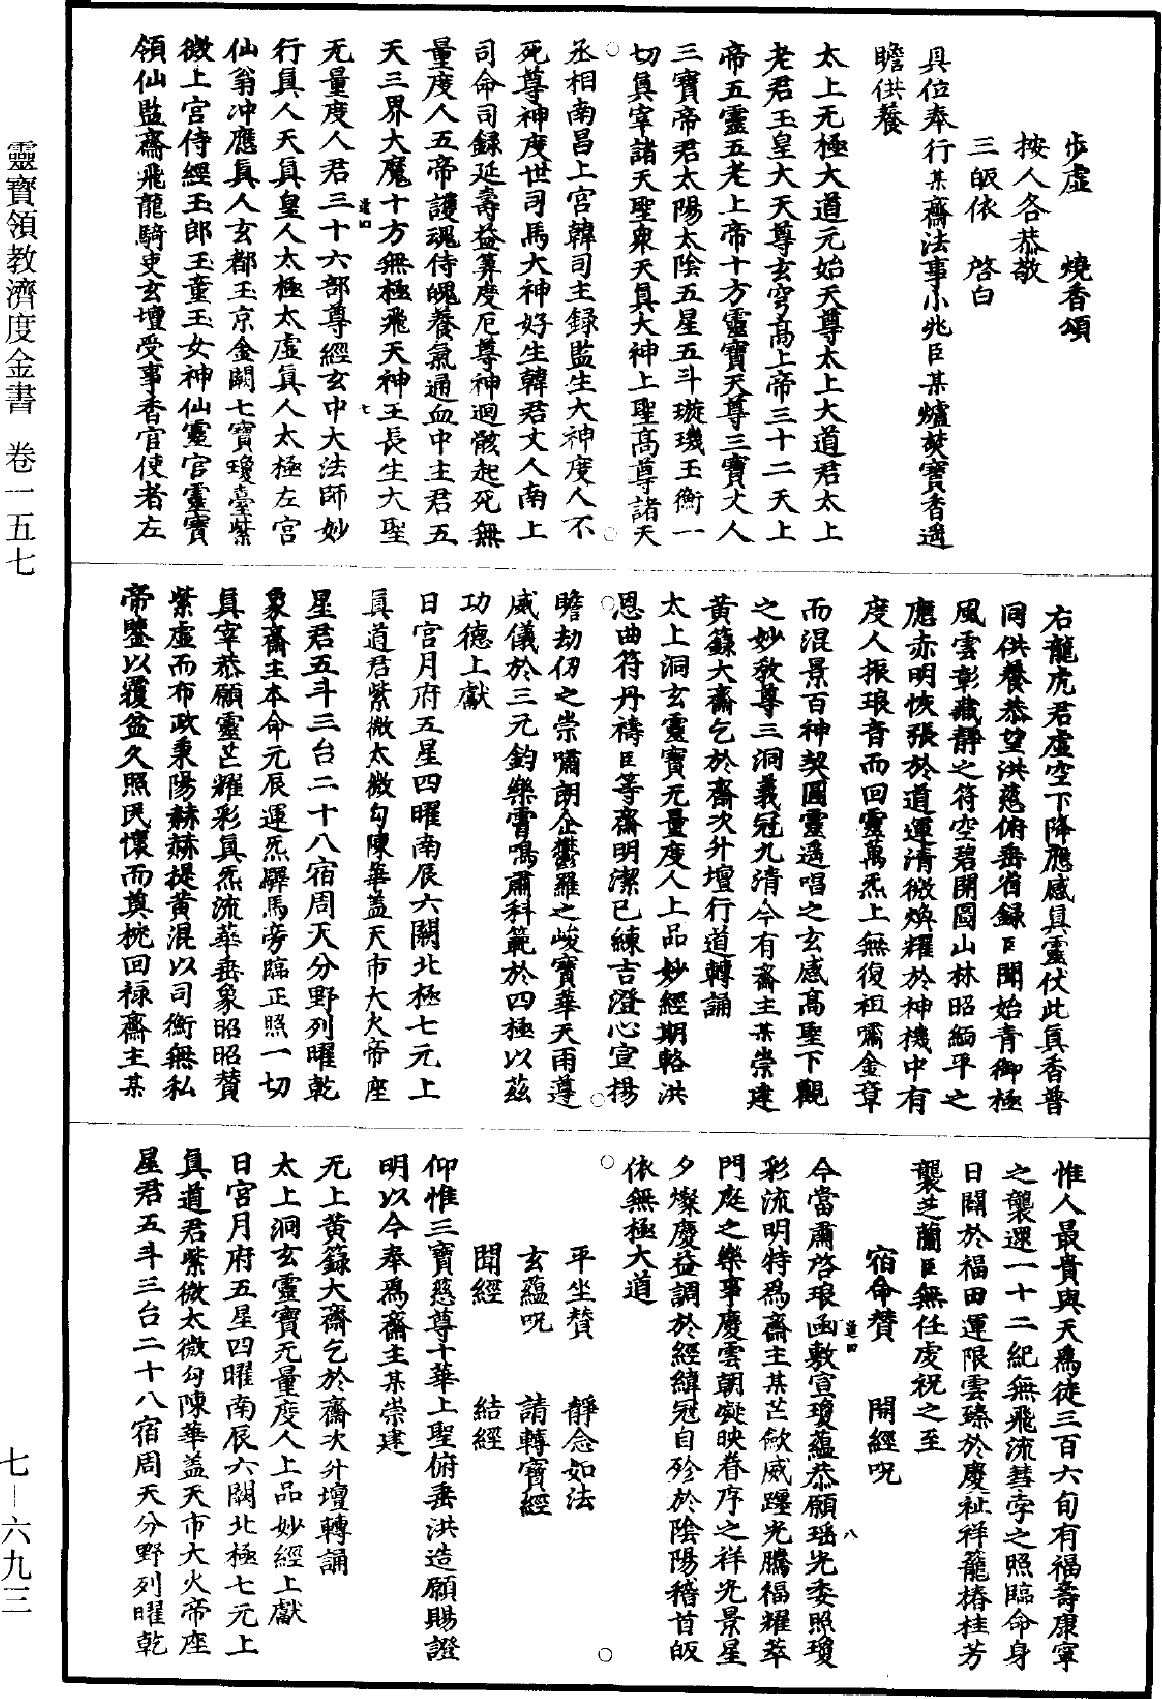 靈寶領教濟度金書 卷一五七
七—六九三
步虛 燒香頌
按人各恭敬
三皈依 啓白
具位奉行某齋法事小兆臣某爐焚寶香遥
瞻供養
太上无極大道元始天尊太上大道君太上
老君玉皇大天尊玄穹高上帝三十二天上
帝五靈五老上帝十方靈寶天尊三寶丈人
三寶帝君太陽太陰五星五斗璇璣玉衡一
切真宰諸天聖衆天真大神上聖高尊諸天
丞相南昌上宫韓司主録監生大神度人不
死尊神度世司馬大神好生韓君丈人南上
司命司録延壽益筭度厄尊神迴骸起死無
量度人五帝護魂侍魄養氣通血中主君五
天三界大魔十方無極飛天神王長生大聖
道四 七
无量度人君三十六部尊經玄中大法師妙
行真人天真皇人太極太虛真人太極左宫
仙翁冲應真人玄都玉京金闕七寶瓊臺紫
微上宫侍經玉郎玉童玉女神仙靈官靈寶
領仙監齋飛龍騎吏玄壇受事香官使者左
右龍虎君虛空下降應感真靈伏此真香普
同供養恭望洪慈俯垂省録臣聞始青御極
風雲彰藏靜之符空碧開圖山林昭緬平之
應赤明恢張於道運清微焕耀於神機中有
度人振琅音而回靈萬炁上無復祖嘯金章
而混景百神契圓靈遥唱之玄感高聖下觀
之妙教尊三洞義冠九清今有齋主某崇建
黄籙大齋乞於齋次升壇行道轉誦
太上洞玄靈寶无量度人上品妙經期輅洪
恩曲符丹禱臣等齋明潔已練吉澄心宣揚
瞻劫仞之崇嘯朗企鬱羅之峻寶華天雨遵
威儀於三元鈞樂霄鳴肅科範於四極以兹
功德上獻
日宫月府五星四曜南辰六關北極七元上
真道君紫微太微勾陳華盖天市大火帝座
星君五斗三台二十八宿周天分野列曜乾
象齋主本命元辰運炁驛馬旁臨正照一切
真宰恭願靈芒耀彩真炁流華垂象昭昭贊
紫虛而布政秉陽赫赫提黄混以司衡無私
帝鑒以覆盆久照民懷而奠桄回禄齋主某
惟人最貴與天爲徒三百六旬有福壽康寧
之襲運一十二紀無飛流彗孛之照臨命身
日關於福田運限雲臻於慶祉祥籠椿桂芳
襲芝蘭臣無任虔祝之至
宿命贊 開經呪
道四 八
今當肅啓琅函敷宣瓊蘊恭願瑶光委照瓊
彩流明特爲齋主某芒斂威躔光騰福耀萃
門庭之樂事慶雲朝凝映春序之祥光景星
夕燦慶益調於經緯冠自殄於陰陽稽首皈
依無極大道
平坐贊 靜念如法
玄蘊呪 請轉寶經
聞經 結經
仰惟三寶慈尊十華上聖俯垂洪造願賜證
明以今奉爲齋主某崇建
无上黄籙大齋乞於齋次升壇轉誦
太上洞玄靈寶无量度人上品妙經上獻
日宫月府五星四曜南辰六關北極七元上
真道君紫微太微勾陳華盖天市大火帝座
星君五斗三台二十八宿周天分野列曜乾